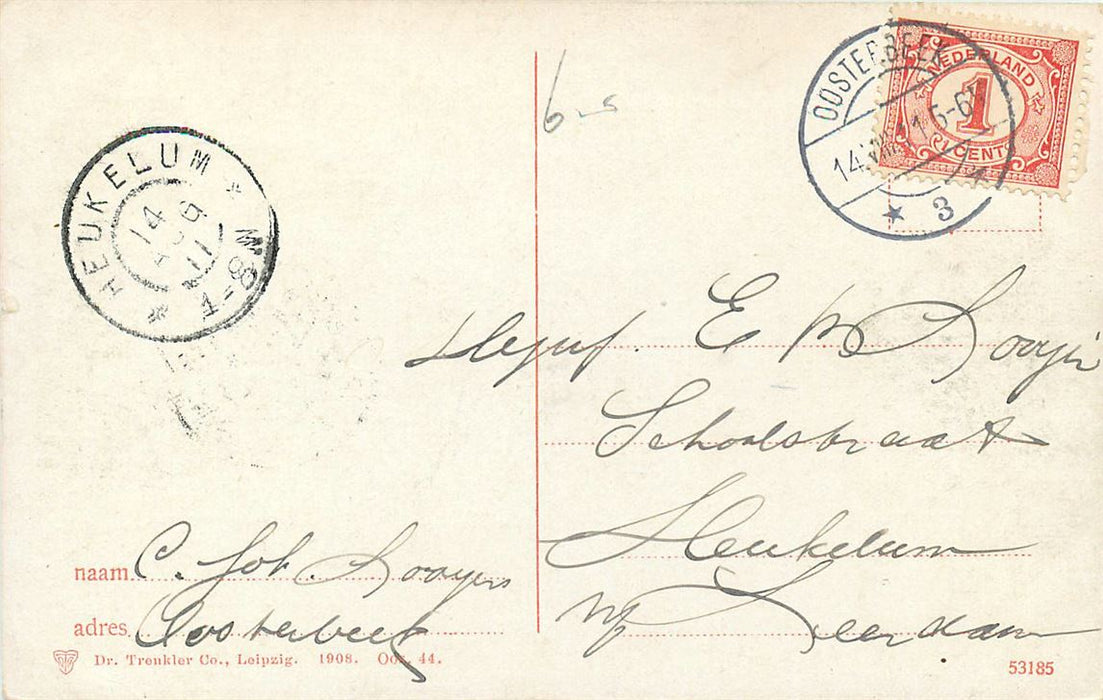 HEUKELUM
14
11
OOSTERBEEK
3
NEDERLAND
1
1 CENT
E
Schoolstraat
Heukelum
Leerdam
naam C. Joh. Rooyens
adres Oosterbeek
Dr. Trenkler Co., Leipzig. 1908. Oos. 44.
53185